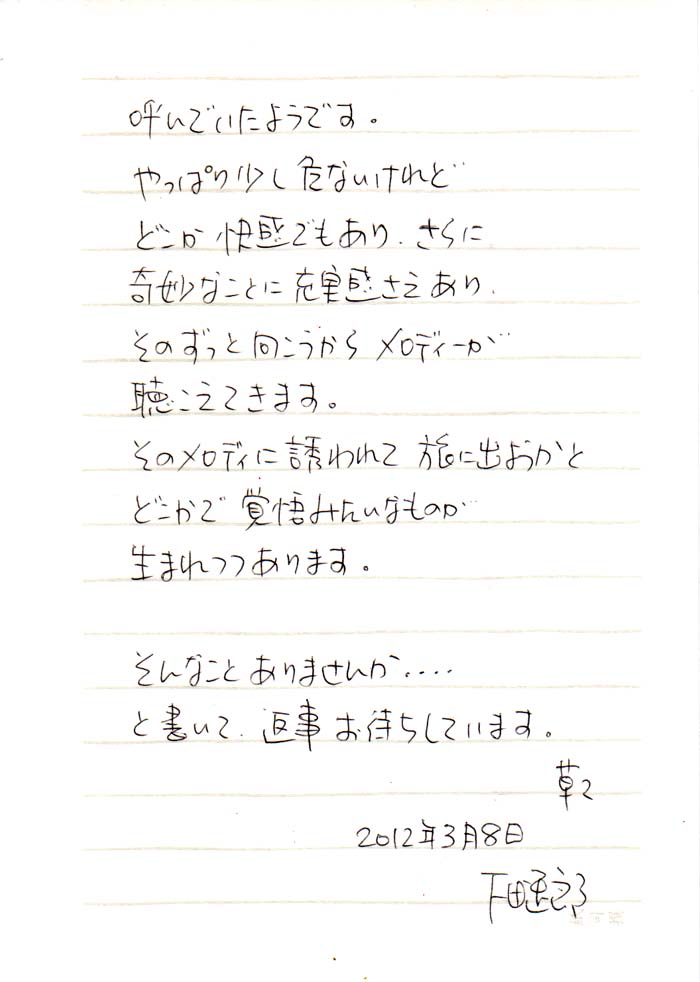 呼んでいたようです。
やっぱり少し危ないけれど
どこか快感でもあり、さらに
奇妙なことに充実感さえあり、
そのずっと向こうからメロディーが
聴こえてきます。
そのメロディに誘われて旅に出ようかと
どこかで覚悟みたいなものが
生まれつつあります。
そんなことありませんか....
と書いて、返事お待ちしています。
草々
2012年3月8日
下田逸郎